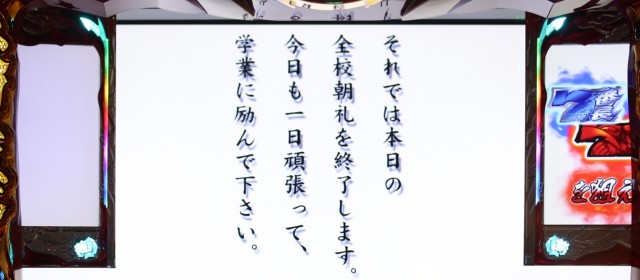 それでは本日の
全校朝礼を終了します。
今日も一日頑張って、
学業に励んで下さい。
7
番長
7
を狙え